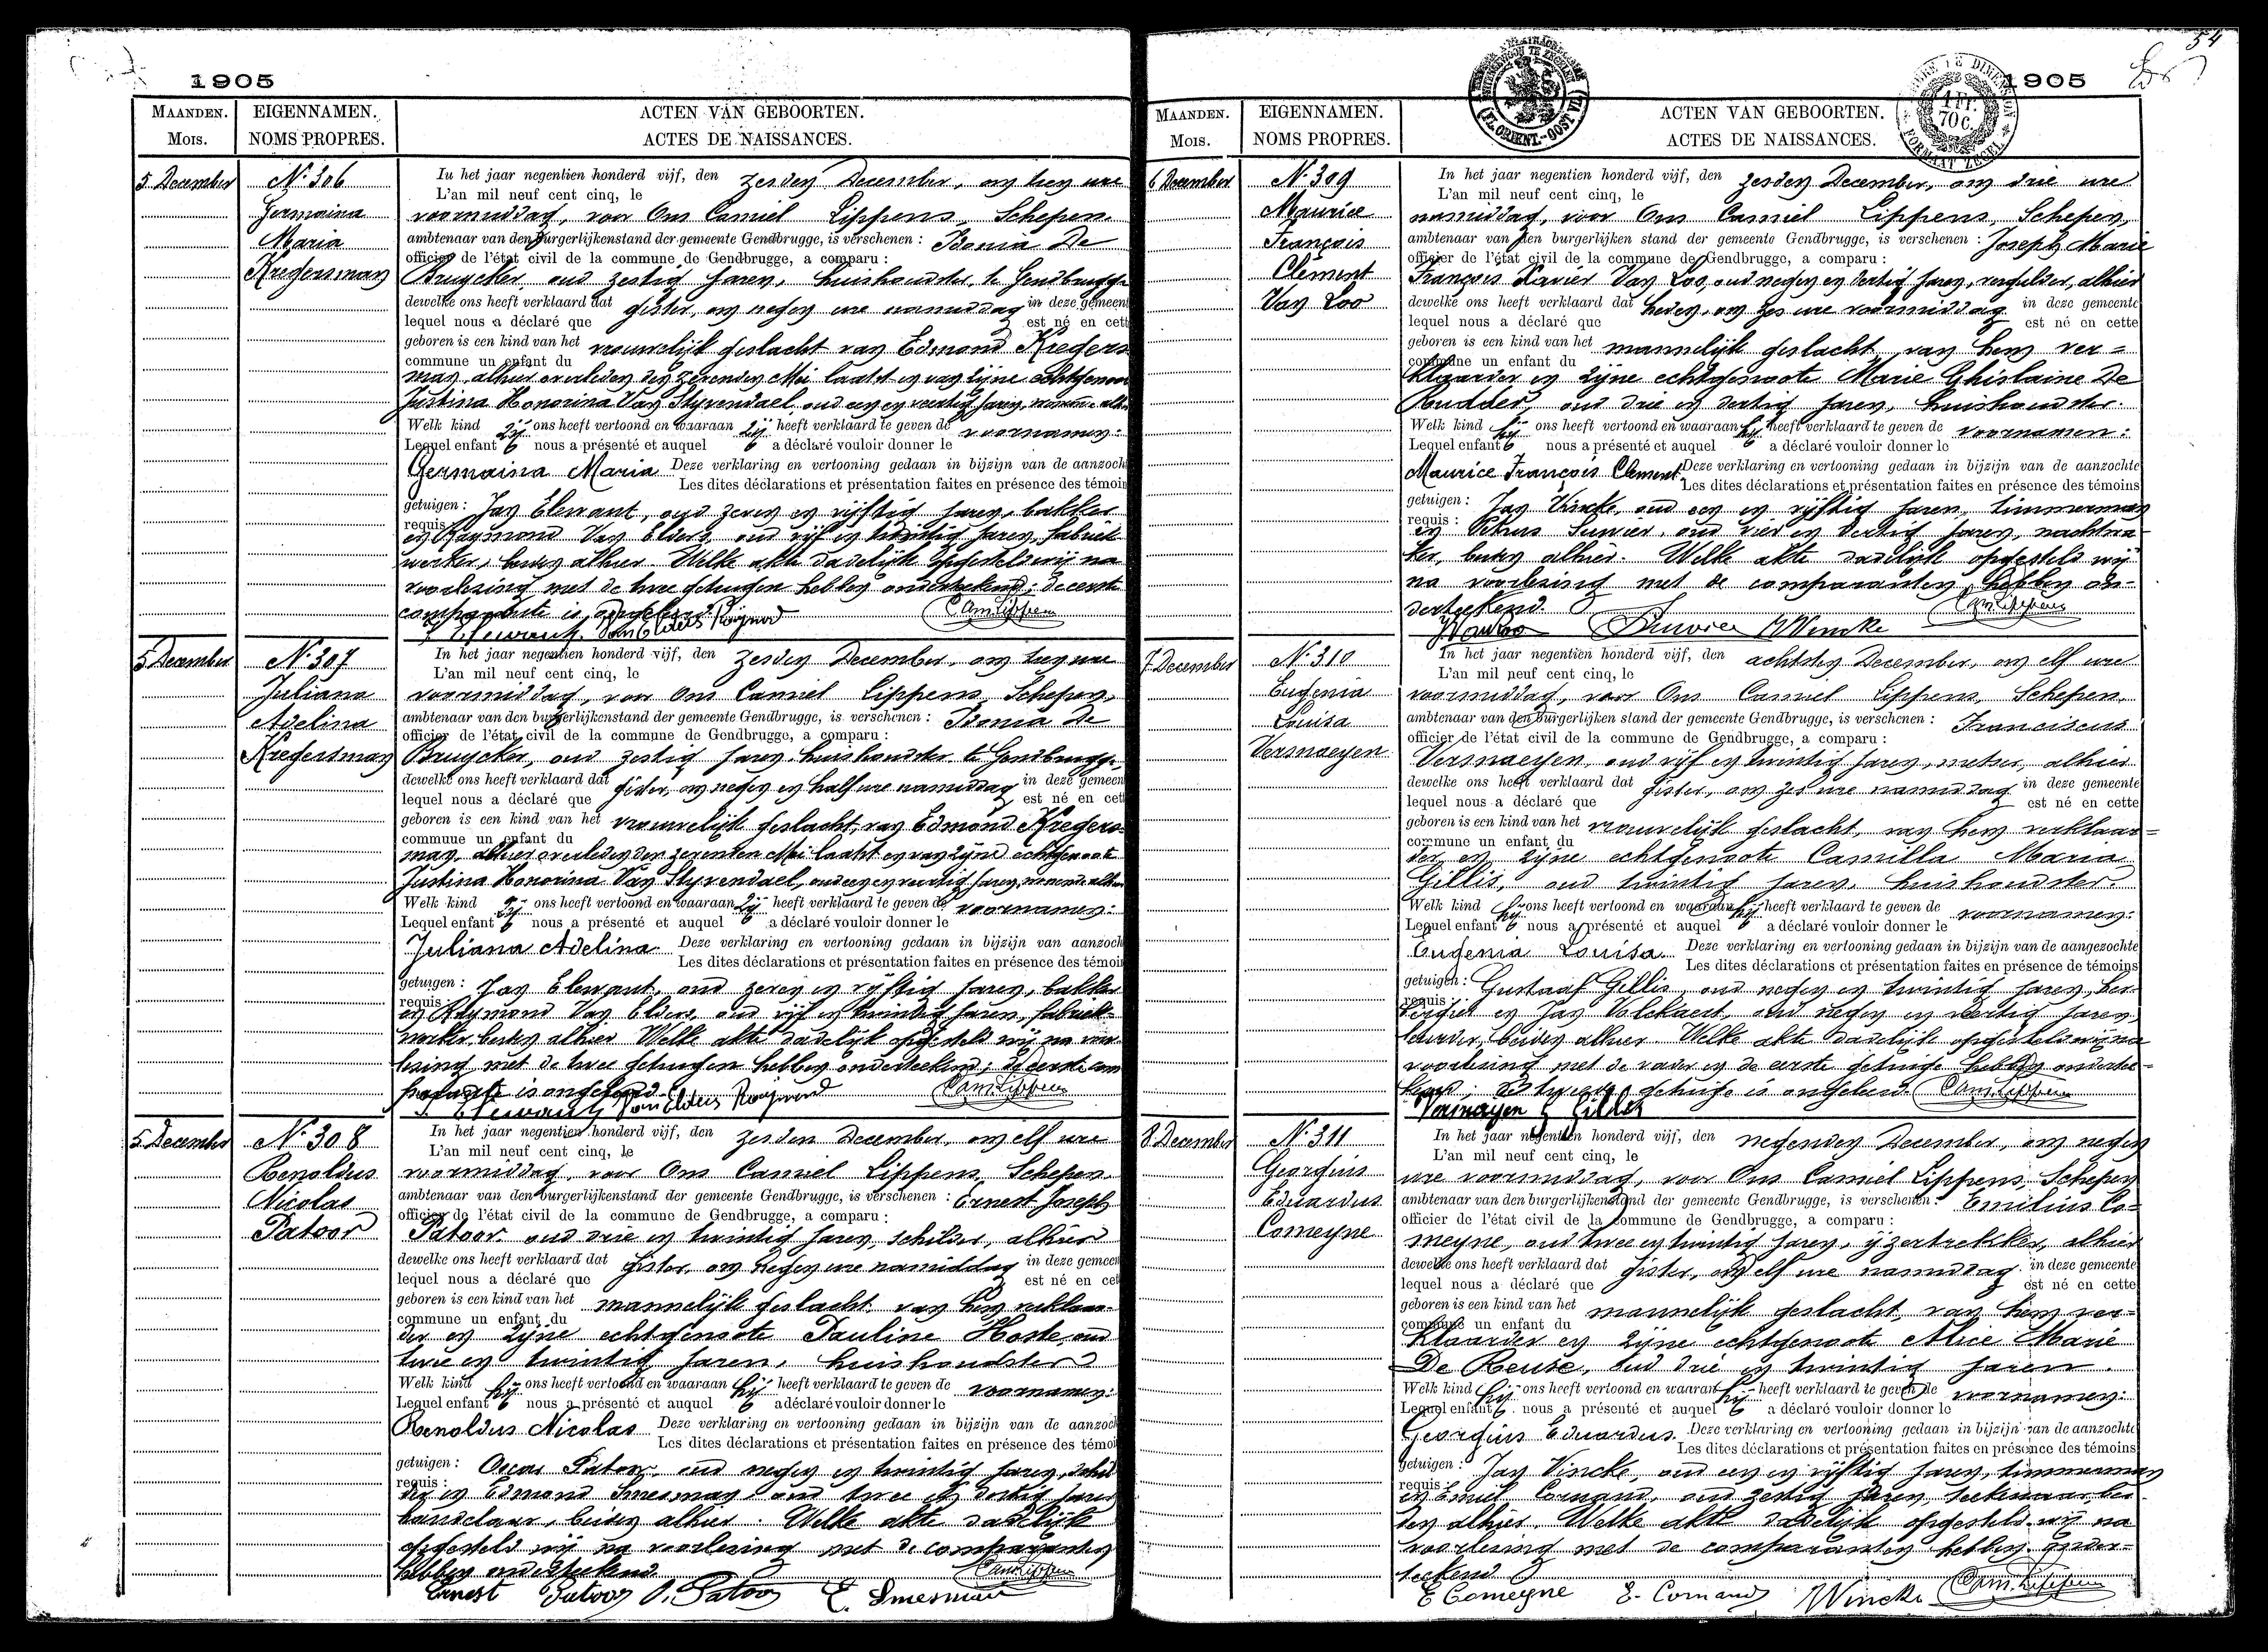 1905
MAANDEN. EIGENNAMEN. ACTEN VAN GEBOORTEN.
MOIS. NOMS PROPRES. ACTES DE NAISSANCES.
5 December
Nº 306
Germaina
Maria
Kregersman
In het jaar negentien honderd vijf, den zesden December, om tien ure
L'an mil neuf cent cinq, le
voormiddag, voor Ons Camiel Lippens, Schepen
ambtenaar van den burgerlijkenstand der gemeente Gendbrugge, is verschenen : De
officier de l'état civil de la commune de Gendbrugge, a comparu :
Bruycker, oud zestig jaren, huishoudster, te Gendbrugge
dewelke ons heeft verklaard dat gister, om negen ure namiddag in deze gemeent
lequel nous a déclaré que est né en cett
geboren is een kind van het vrouwelijk geslacht van Edmond Kregers
commune un enfant du
man, alhier overleden den zevenden Mei laatst en van zijne echtgenoot
Justina Honorina Van Styvendael, oud een en veertig jaren,
Welk kind zij ons heeft vertoond en waaraan zij heeft verklaard te geven de voornamen:
Lequel enfant nous a présenté et auquel a déclaré vouloir donner le
Germaina Maria Deze verklaring en vertooning gedaan in bijzijn van de aanzoch
Les dites déclarations et présentation faites en présence des témoin
getuigen : Jan Elewant, oud zeven en vijftig jaren, bakker
requis :
en Raymond Van Elders, oud vijf en twintig jaren, fabriek
werker, beiden alhier Welke akte dadelijk opgesteld wij na
voorlezing met de twee getuigen hebben onderteekend; de eerste
comparante is ongeleerd. Cam. Lippens
Van Elders
5 December
Nº 307
Juliana
Adelina
Kregersman
In het jaar negentien honderd vijf, den zesden December, om tien ure
L'an mil neuf cent cinq, le
voormiddag, voor Ons Camiel Lippens, Schepen,
ambtenaar van den burgerlijkenstand der gemeente Gendbrugge, is verschenen : De
officier de l'état civil de la commune de Gendbrugge, a comparu :
Bruycker, oud zestig jaren, huishoudster te Gendbrugge
dewelke ons heeft verklaard dat gister, om negen en half ure namiddag in deze gemeen
lequel nous a déclaré que est né en cett
geboren is een kind van het vrouwelijk geslacht, van Edmond Kregers-
commune un enfant du
man, alhier overleden den zevenden Mei laatst en van zijne echtgenoote
Justina Honorina Van Styvendael, oud een en veertig jaren,
Welk kind zij ons heeft vertoond en waaraan zij heeft verklaard te geven de voornamen:
Lequel enfant nous a présenté et auquel a déclaré vouloir donner le
Juliana Adelina. Deze verklaring en vertooning gedaan in bijzijn van aanzoch
Les dites déclarations et présentation faites en présence des témoin
getuigen : Jan Elewant, oud zeven en vijftig jaren, bakker
requis :
en Raymond Van Elders, oud vijf en twintig jaren, fabriek-
werker, beiden alhier Welke akte dadelijk opgesteld wij na voor
lezing met de twee getuigen hebben onderteekend; de eerste com
parante is ongeleerd. Cam. Lippens
Van Elders
5 December
Nº 308
Renoldus
Nicolas
Patoor
In het jaar negentien honderd vijf, den zesden December, om elf ure
L'an mil neuf cent cinq, le
voormiddag, voor Ons Camiel Lippens, Schepen
ambtenaar van den burgerlijkenstand der gemeente Gendbrugge, is verschenen : Ernest Joseph
officier de l'état civil de la commune de Gendbrugge, a comparu :
Patoor, oud drie en twintig jaren, schilder, alhier
dewelke ons heeft verklaard dat gister, om negen ure namiddag in deze gemeen
lequel nous a déclaré que est né en cet
geboren is een kind van het mannelijk geslacht, van hem verklaar-
commune un enfant du
der en zijne echtgenoote Pauline Hoste, oud
twee en twintig jaren, huishoudster
Welk kind hij ons heeft vertoond en waaraan hij heeft verklaard te geven de voornamen:
Lequel enfant nous a présenté et auquel a déclaré vouloir donner le
Renoldus Nicolas Deze verklaring en vertooning gedaan in bijzijn van de aanzoch
Les dites déclarations et présentation faites en présence des témoi
getuigen : Oscar Patoor, oud negen en twintig jaren, schil
requis :
der en Edmond Smesman oud twee en dertig jaren
handelaar, beiden alhier. Welke akte dadelijk
opgesteld wij na voorlezing met de comparanten
hebben onderteekend. Cam. Lippens
Ernest Patoor O. Patoor E. Smesman
54
1905
MAANDEN. EIGENNAMEN. ACTEN VAN GEBOORTEN.
MOIS. NOMS PROPRES. ACTES DE NAISSANCES.
1 Fr.
70 c.
6 December
Nº 309
Maurice
François
Clément
Van Loo
In het jaar negentien honderd vijf, den zesden December, om drie ure
L'an mil neuf cent cinq, le
namiddag, voor Ons Camiel Lippens, Schepen,
ambtenaar van den burgerlijken stand der gemeente Gendbrugge, is verschenen : Joseph Marie
officier de l'état civil de la commune de Gendbrugge, a comparu :
François Xavier Van Loo, oud negen en dertig jaren, vergulder, alhier
dewelke ons heeft verklaard dat heden, om zes ure voormiddag in deze gemeente
lequel nous a déclaré que est né en cette
geboren is een kind van het mannelijk geslacht, van hem ver=
commune un enfant du
klaarder en zijne echtgenoote Marie Ghislaine De
Rudder, oud drie en dertig jaren, huishoudster.
Welk kind hij ons heeft vertoond en waaraan hij heeft verklaard te geven de voornamen:
Lequel enfant nous a présenté et auquel a déclaré vouloir donner le
Maurice François Clement Deze verklaring en vertooning gedaan in bijzijn van de aanzochte
Les dites déclarations et présentation faites en présence des témoins
getuigen : Jan Vincke, oud een en vijftig jaren, timmerman
requis :
en Petrus oud vier en dertig jaren, nachtwa-
ker, beiden alhier. Welke akte dadelijk opgesteld wij
na voorlezing met de comparanten, hebben on-
derteekend. Cam. Lippens
J Van Loo J Vincke
7 December
Nº 310
Eugenia
Louisa
Vermaeyen
In het jaar negentien honderd vijf, den achtsten December, om elf ure
L'an mil neuf cent cinq, le
voormiddag, voor Ons Camiel Lippens, Schepen.
ambtenaar van den burgerlijken stand der gemeente Gendbrugge, is verschenen : Franciscus
officier de l'état civil de la commune de Gendbrugge, a comparu :
Vermaeyen, oud vijf en twintig jaren, metser, alhier
dewelke ons heeft verklaard dat gister, om zes ure namiddag in deze gemeente
lequel nous a déclaré que est né en cette
geboren is een kind van het vrouwelijk geslacht, van hem verklaar=
commune un enfant du
der en zijne echtgenoote Camilla Maria
Gillis, oud twintig jaren, huishoudster.
Welk kind hij ons heeft vertoond en waaraan hij heeft verklaard te geven de voornamen:
Lequel enfant nous a présenté et auquel a déclaré vouloir donner le
Eugenia Louisa. Deze verklaring en vertooning gedaan in bijzijn van de aangezochte
Les dites déclarations et présentation faites en présence de témoins
getuigen : Gustaaf Gillis, oud negen en twintig jaren, her-
requis :
bergier en Jan Volckaert, oud negen en veertig jaren,
beiden alhier Welke akte dadelijk opgesteld wij na
voorlezing met de vader en de eerste getuige hebben onderte-
kend; de tweede getuige is ongeleerd. Cam. Lippens
Vermayen G Gillis
8 December
Nº 311
Georgius
Eduardus
Comeyne
In het jaar negentien honderd vijf, den negenden December, om negen
L'an mil neuf cent cinq, le
ure voormiddag, voor Ons Camiel Lippens, Schepen
ambtenaar van den burgerlijkenstand der gemeente Gendbrugge, is verschenen : Emilius Co-
officier de l'état civil de la commune de Gendbrugge, a comparu :
meyne, oud twee en twintig jaren, ijzertrekker, alhier
dewelke ons heeft verklaard dat gister, om elf ure namiddag in deze gemeente
lequel nous a déclaré que est né en cette
geboren is een kind van het mannelijk geslacht, van hem ver-
commune un enfant du
klaarder en zijne echtgenoote Alice Marie
De Reuse, oud drie en twintig jaren.
Welk kind hij ons heeft vertoond en waaraan hij heeft verklaard te geven de voornamen:
Lequel enfant nous a présenté et auquel a déclaré vouloir donner le
Georgius Eduardus. Deze verklaring en vertooning gedaan in bijzijn van de aanzochte
Les dites déclarations et présentation faites en présence des témoins
getuigen : Jan Vincke, oud een en vijftig jaren, timmerman
requis :
en Emiel Comand, oud zestig jaren, bei-
den alhier. Welke akte dadelijk opgesteld wij na
voorlezing met de comparanten hebben onder=
teekend
E Comeyne E. Comand J Vincke Cam. Lippens